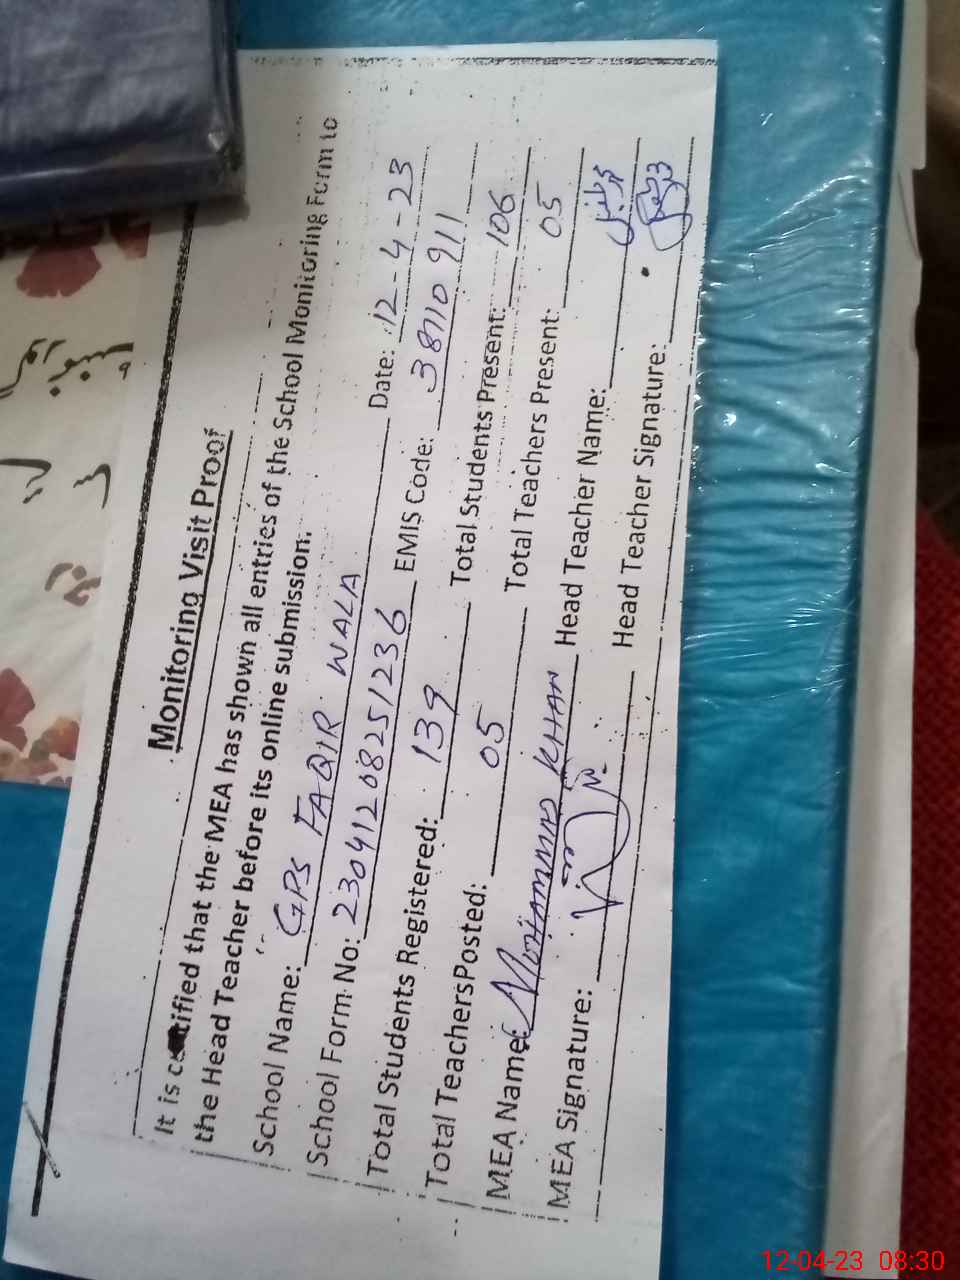 Monitoring Visit Proof
It is certified that the MEA has shown all entries of the School Monitoring Form to
the Head Teacher before its online submission.
School Name: GPS FAQIR WALA Date: 12-4-23
School Form No: 23041208251236 EMIS Code: 38110911
Total Students Registered: 139 Total Students Present: 106
Total Teachers Posted: 05 Total Teachers Present: 05
MEA Name: MOHAMMAD KHAN Head Teacher Name:
MEA Signature: Head Teacher Signature:
12-04-23 08:30